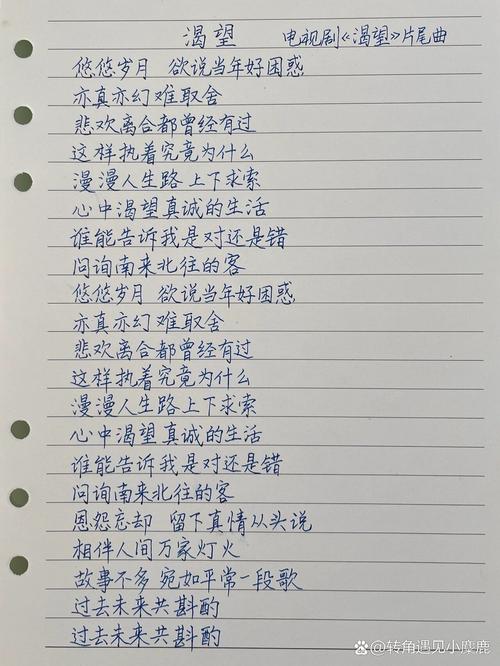 渴望 电视剧《渴望》片尾曲
悠悠岁月 欲说当年好困惑
亦真亦幻难取舍
悲欢离合都曾经有过
这样执着究竟为什么
漫漫人生路 上下求索
心中渴望真诚的生活
谁能告诉我是对还是错
问询南来北往的客
悠悠岁月 欲说当年好困惑
亦真亦幻难取舍
悲欢离合都曾经有过
这样执着究竟为什么
漫漫人生路上下求索
心中渴望真诚的生活
谁能告诉我是对还是错
问询南来北往的客
恩怨忘却 留下真情从头说
相伴人间万家灯火
故事不多 宛如平常一段歌
过去未来共斟酌
过去未来共斟酌
@转角遇见小麋鹿